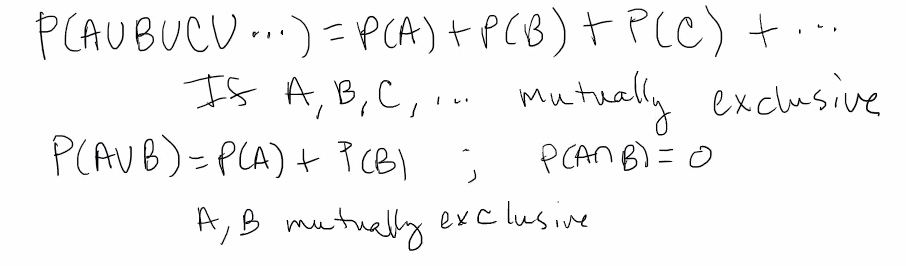 P(A∪B∪C∪...) = P(A) + P(B) + P(C) + ...
If A, B, C, ... mutually exclusive
P(A∪B) = P(A) + P(B) ; P(A∩B) = 0
A, B mutually exclusive